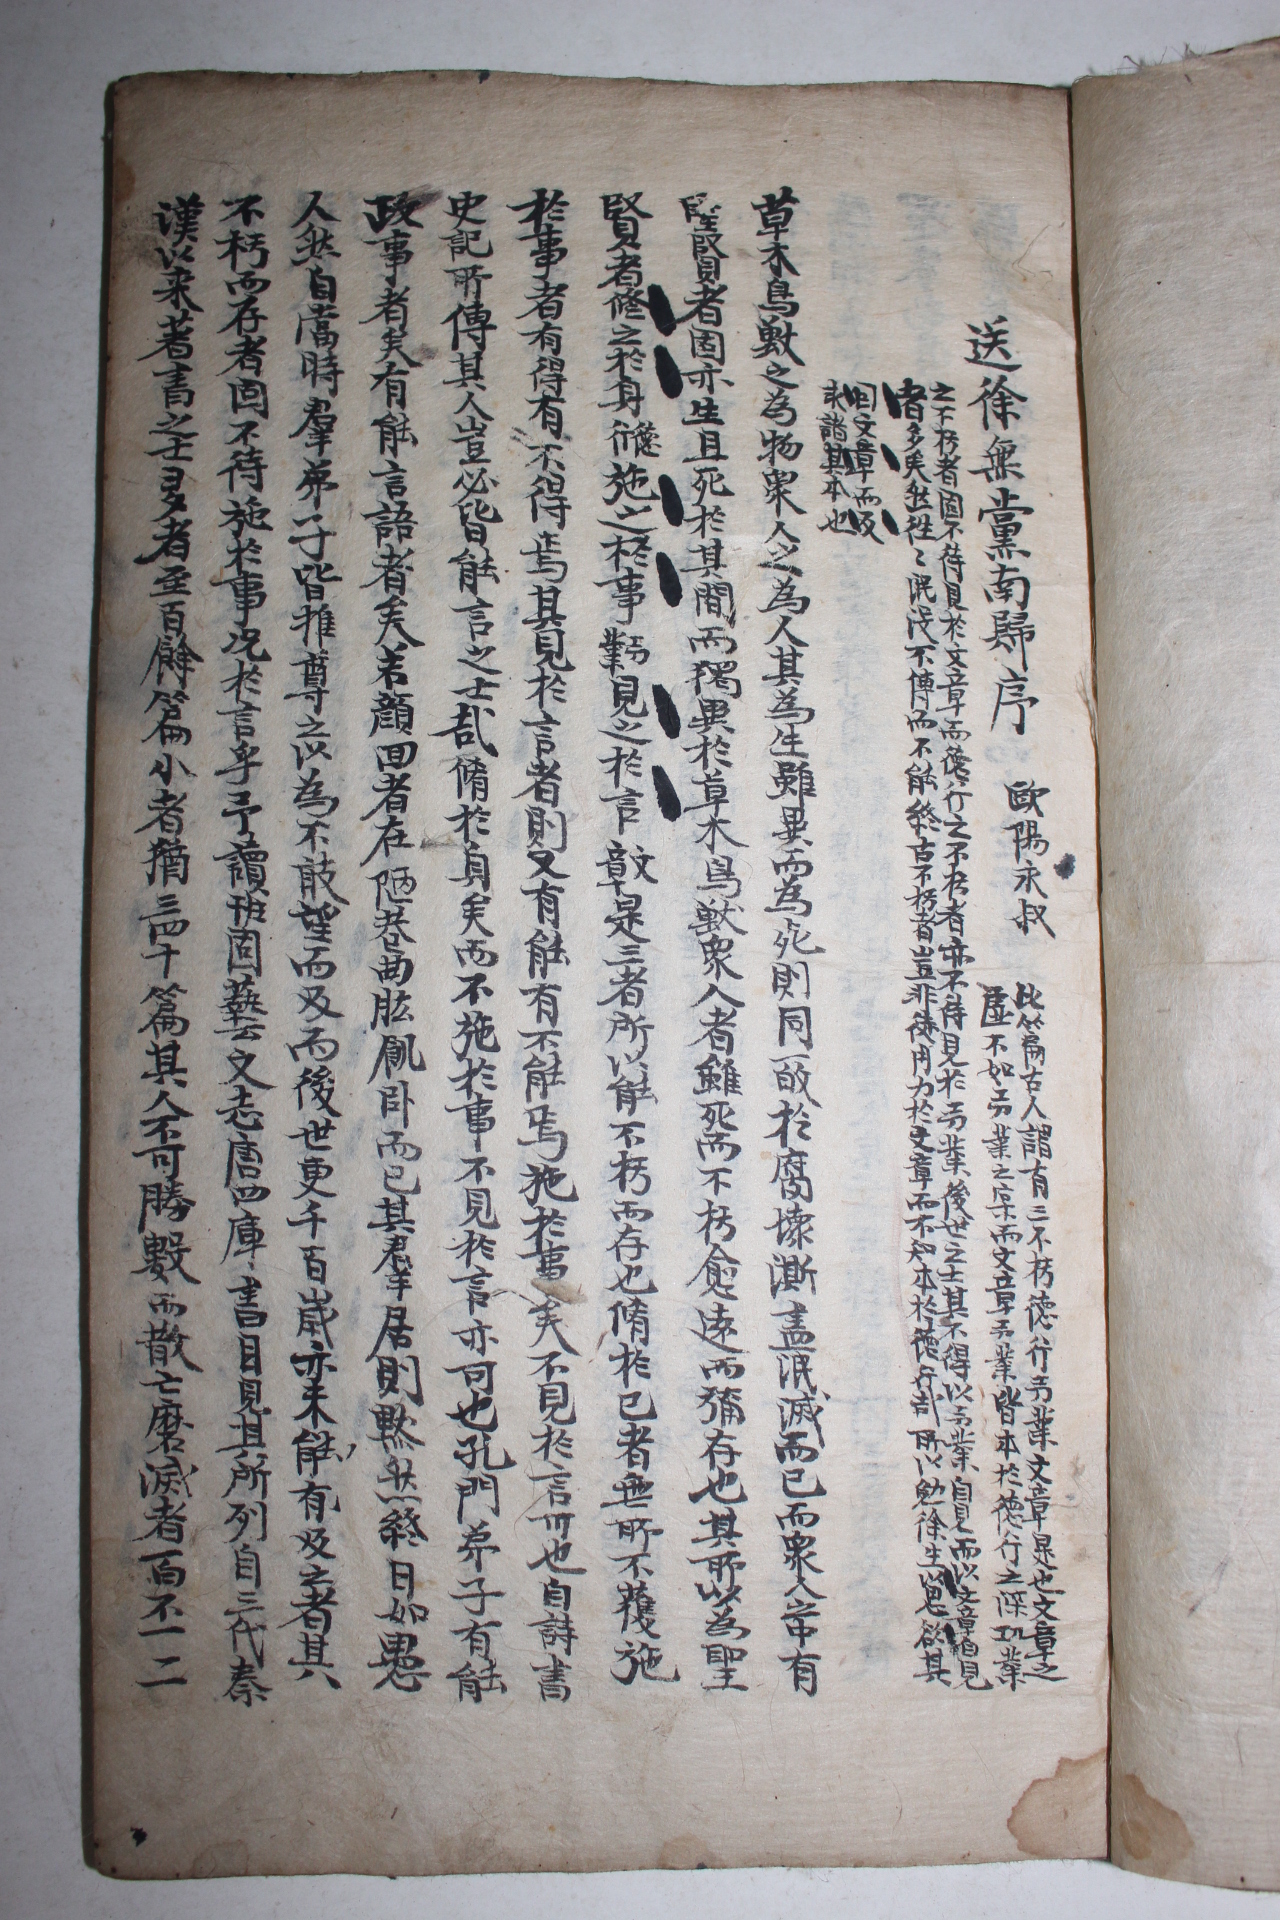 送徐無黨南歸序
歐陽永叔
此篇古人謂有三不朽德行功業文章是也文章之
虛不如功業之實而文章功業皆本於德行之深功業
之不朽者固不待見於文章而德行之不朽者亦不待見於功業後世之士其不得以功業自見而以文章自見
者多矣然往〻泯没不傳而不能終古不朽者豈非徒用力於文章而不知本於德行哉所以勉徐生以思欲其
因文章而及
求諸其本也
草木鳥獸之為物衆人之為人其為生雖異而為死則同一敀於腐壞澌盡泯滅而已而衆人之中有
聖賢者固亦生且死於其間而獨異於草木鳥獸衆人者雖死而不朽愈遠而彌存也其所以為聖
賢者修之於身德行施之於事功業見之於言文章是三者所以能不朽而存也脩於已者無所不獲施
於事者有得有不得焉其見於言者則又有能有不能焉施於事矣不見於言可也自詩書
史記所傳其人豈必皆能言之士哉脩於身矣而不施於事不見於言亦可也孔門弟子有能
政事者矣有能言語者矣若顔回者在陋巷曲肱飢卧而已其羣居則默然終日如愚
人然自當時羣弟子皆推尊之以為不敢望而及而後世更千百歲亦未能有及之者其
不朽而存者固不待施於事况於言乎予讀班固藝文志唐四庫書目見其所列自三代秦
漢以来著書之士多者至百餘篇小者猶三四十篇其人不可勝數而散亡磨滅者百不一二